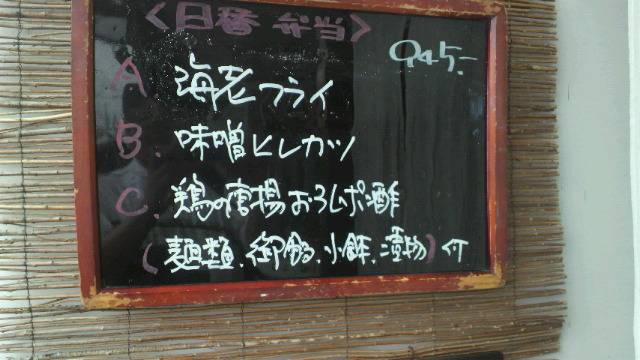 <日替弁当>
945.-
A 海老フライ
B. 味噌ヒレカツ
C. 鶏の唐揚おろしポン酢
(麺類、御飯、小鉢、漬物)付